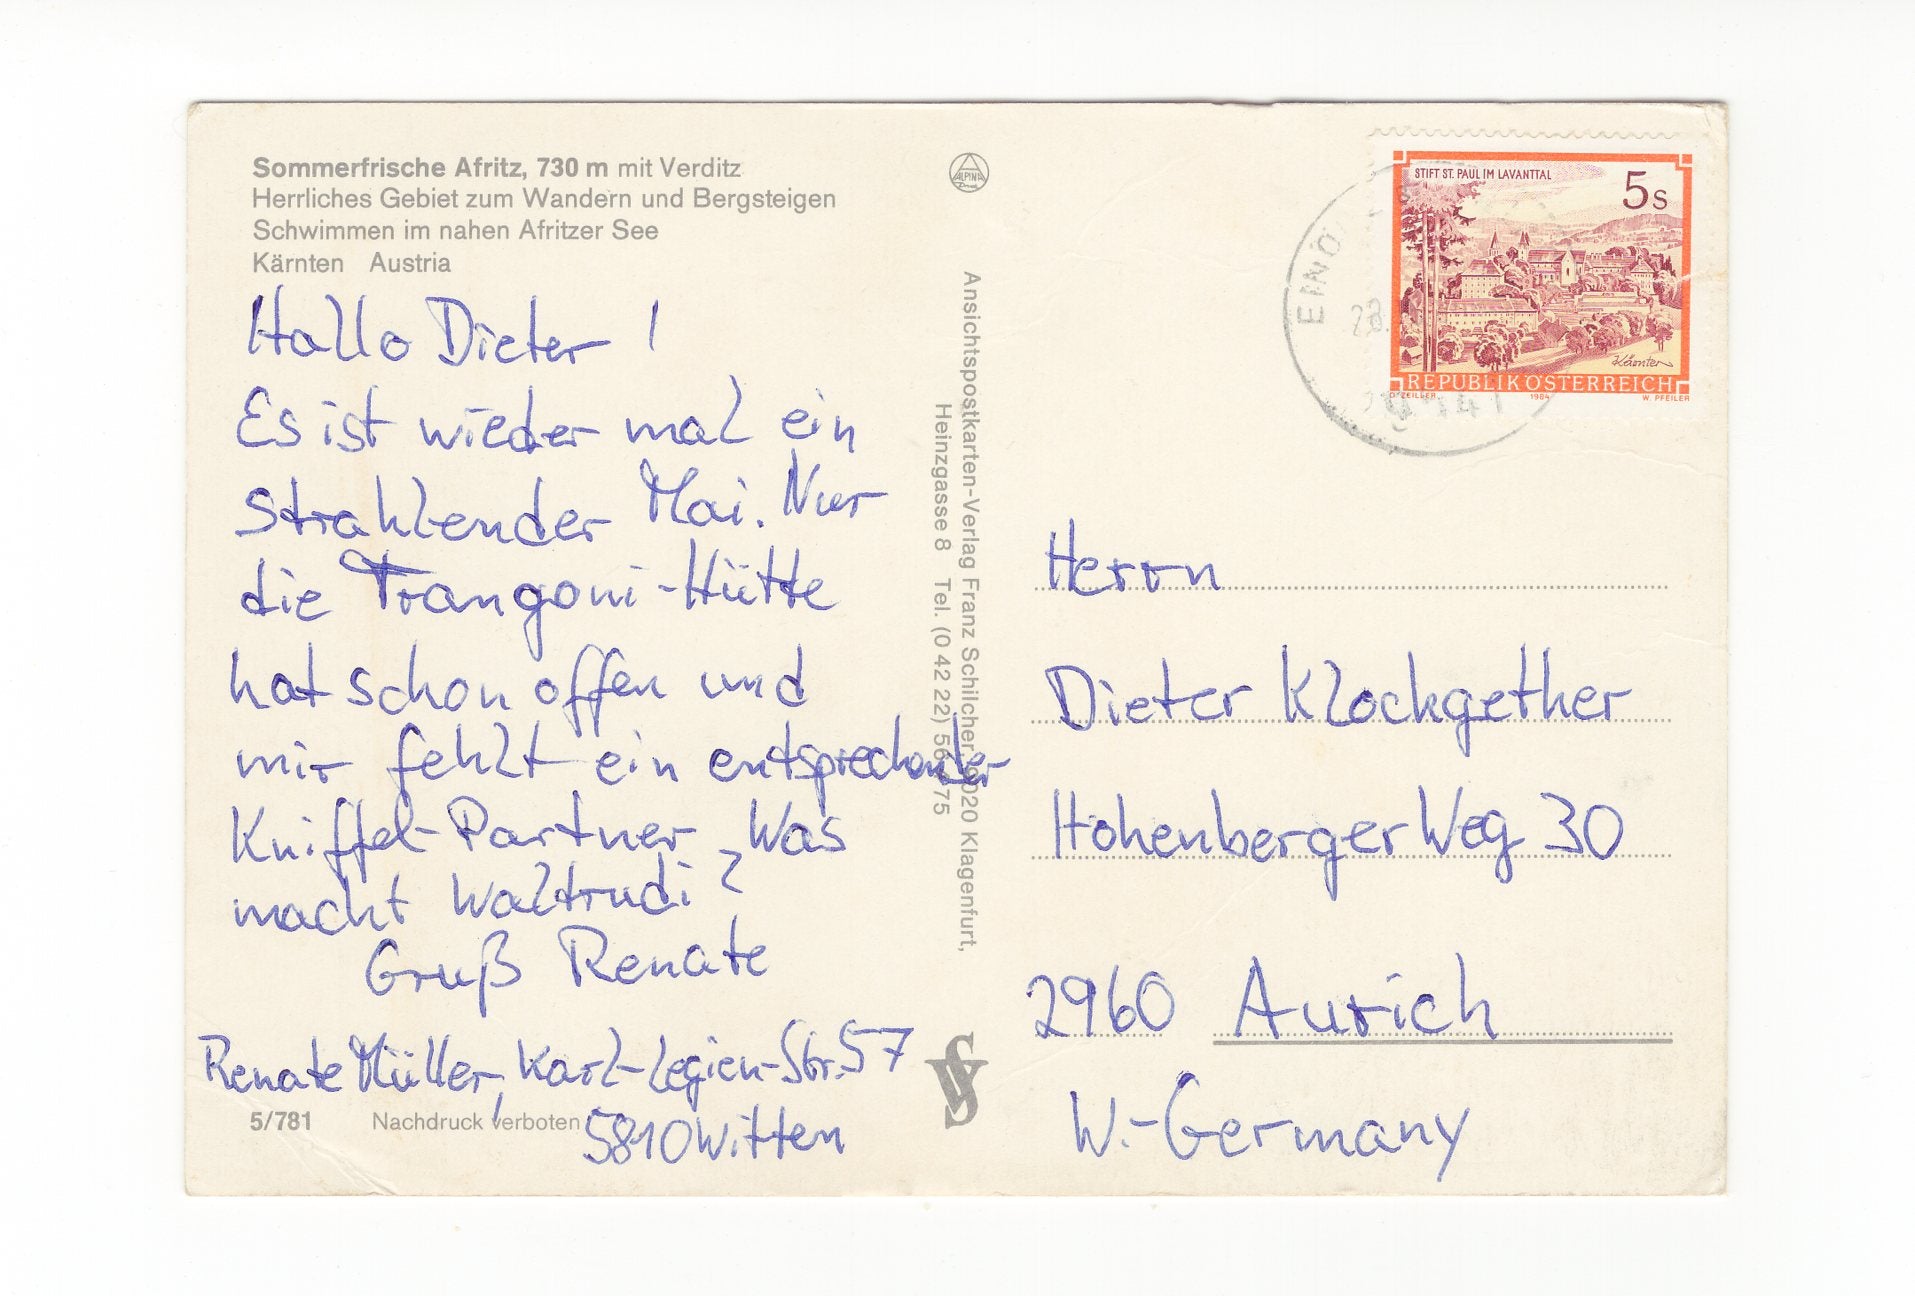 Sommerfrische Afritz, 730 m mit Verditz
Herrliches Gebiet zum Wandern und Bergsteigen
Schwimmen im nahen Afritzer See
Kärnten Austria
Hallo Dieter!
Es ist wieder mal ein
strahlender Mai. Nur
die Trangoni-Hütte
hat schon offen und
mir fehlt ein entsprechender
Kniffel-Partner. Was
macht Waltrudi?
Gruß Renate
Renate Müller, Karl-Legien-Str. 57
5810 Witten
5/781 Nachdruck verboten
Ansichtspostkarten-Verlag Franz Schilcher, 9020 Klagenfurt,
Heinzgasse 8 Tel. (0 42 22) 56
75
ALPINA
Druck
STIFT ST. PAUL IM LAVANTTAL
5 S
Kärnten
REPUBLIK ÖSTERREICH
O. ZEILLER 1984 W. PFEILER
EINÖ
Herrn
Dieter Klockgether
Hohenberger Weg 30
2960 Aurich
W.-Germany